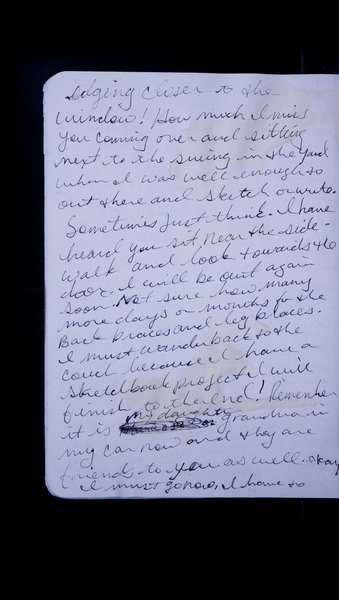 edging closer to the
window! How much I miss
you coming over and sitting
next to the swing in the yard
when I was well enough to
out there and sketch or write.
Sometimes I just think. I have
heard you sit near the side-
walk and look towards the
door. I will be out again
soon. Not sure how many
more days or months for the
Back braces and leg braces.
I must wander back to the
couch because I have a
sketchbook project I will
finish to the end! Remember
it is my daughter grandma in
my car now and they are
friends to you as well. okay
I must go now, I have to